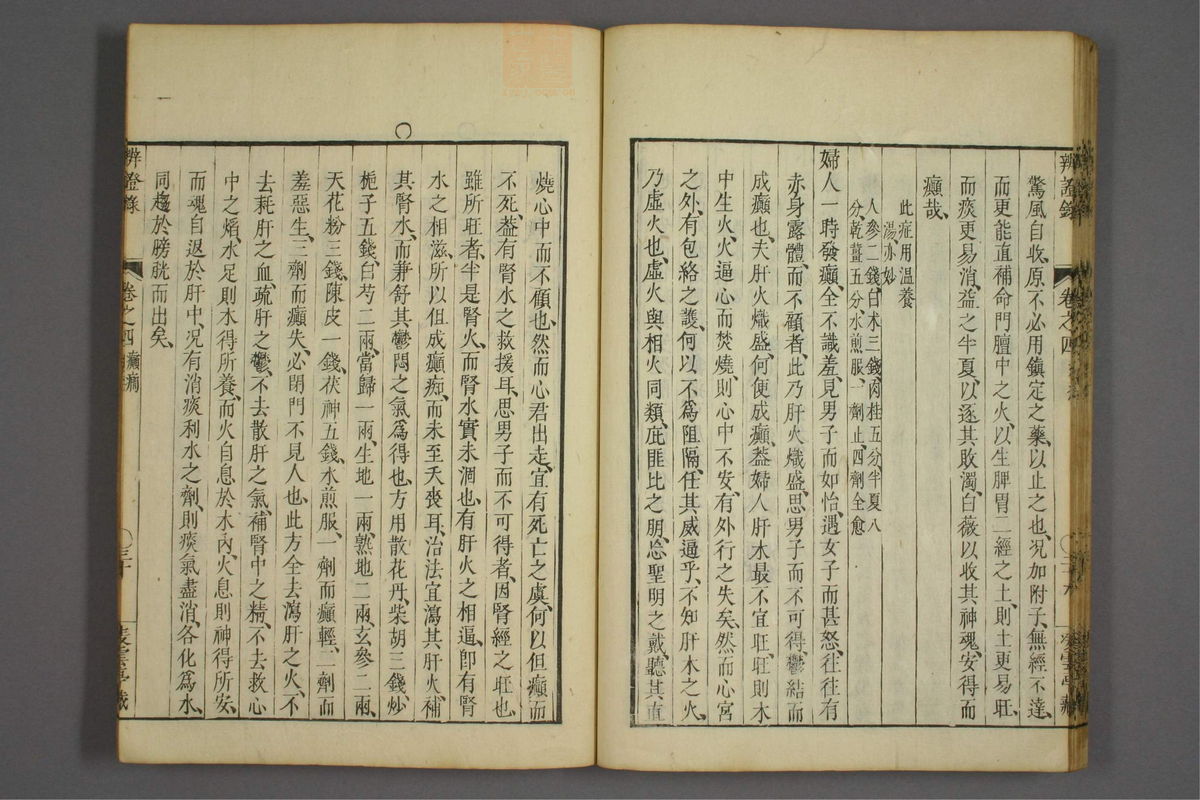 驚風自收、原不必用鎭定之藥、以止之也、况加附子、無經不達、
而更能直補命門膻中之火、以生脾胃二經之土、則土更易旺、
而痰更易消、益之半夏、以逐其敗濁、白薇以收其神魂、安得而
癲哉、
此症用溫養
湯亦妙
人參二錢、白术三錢、肉桂五分、半夏八
分、乾薑五分、水煎服、一劑止、四劑全愈
婦人一時發癲、全不識羞、見男子而如怡、遇女子而甚怒、往往有
赤身露體、而不顧者、此乃肝火熾盛、思男子而不可得、鬱結而
成癲也、夫肝火熾盛、何便成癲、葢婦人肝木最不宜旺、旺則木
中生火、火逼心而焚燒、則心中不安、有外行之失矣、然而心宮
之外、有包絡之護、何以不爲阻隔、任其威逼乎、不知肝木之火、
乃虛火也、虛火與相火同類、庇匪比之朋、忘聖明之戴、聽其直
辨證錄
卷之四
燒心中而不顧也、然而心君出走、宜有死亡之虞、何以但癲而
不死、葢有腎水之救援耳、思男子而不可得者、因腎經之旺也、
雖所旺者、半是腎火、而腎水實未涸也、有肝火之相逼、卽有腎
水之相滋、所以但成癲痴、而未至夭喪耳、治法宜瀉其肝火、補
其腎水、而兼舒其鬱悶之氣爲得也、方用散花丹、柴胡三錢、炒
梔子五錢、白芍二兩、當歸一兩、生地一兩、熟地二兩、玄參二兩、
天花粉三錢、陳皮一錢、茯神五錢、水煎服、一劑而癲輕、二劑而
羞惡生、三劑而癲失、必閉門不見人也、此方全去瀉肝之火、不
去耗肝之血、疏肝之鬱、不去散肝之氣、補腎中之精、不去救心
中之熖、水足則木得所養、而火自息於木內、火息則神得所安、
而魂自返於肝中、况有消痰利水之劑、則痰氣盡消、各化爲水、
同趨於膀胱而出矣、
辨證錄
卷之四 癲癇
三十